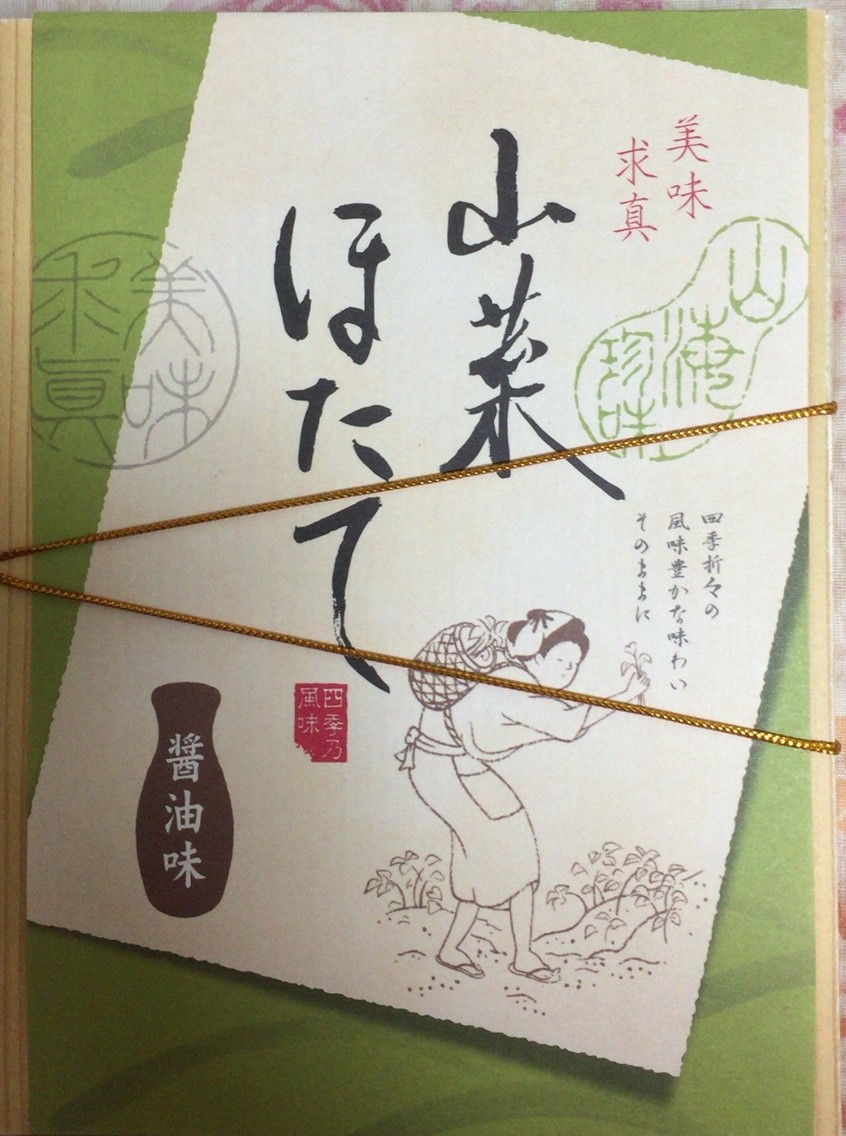 美味
求真
山海
珍味
山菜
ほたて
四季折々の
風味豊かな味わい
そのままに
四季乃
風味
醤油味
美味
求真